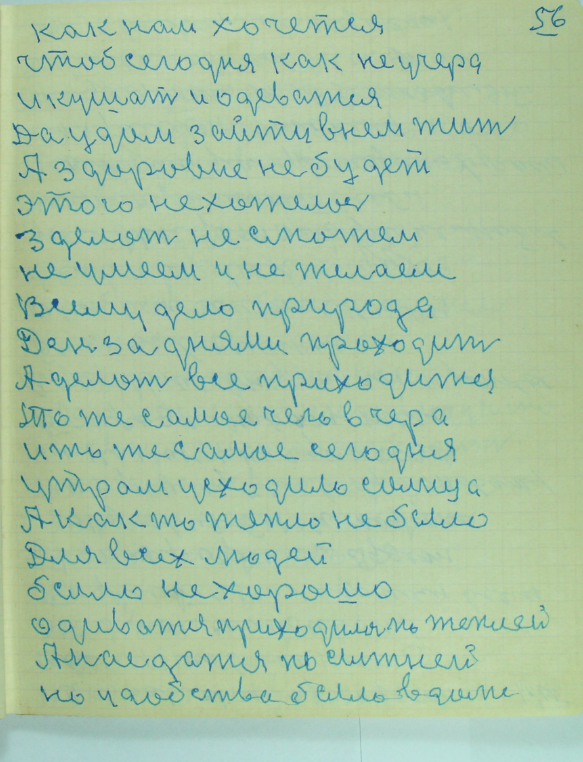 56
как нам хочется
чтоб сегодня как неучера
и кушат и одеватся
Да удом зайти в нем жит
А здоровие не будет
этого не хотелос
зделат не сможем
не умеем и не желаем
Всему дело природа
Ден за днями проходит
А делат все приходится
То же самое чего вчера
и то же самое сегодня
утрам усходило солнца
А как то тепло не было
Для всех людей
было не хорошо
одеватся приходился по теплей
А наедатся по сытней
но удобства было в доме